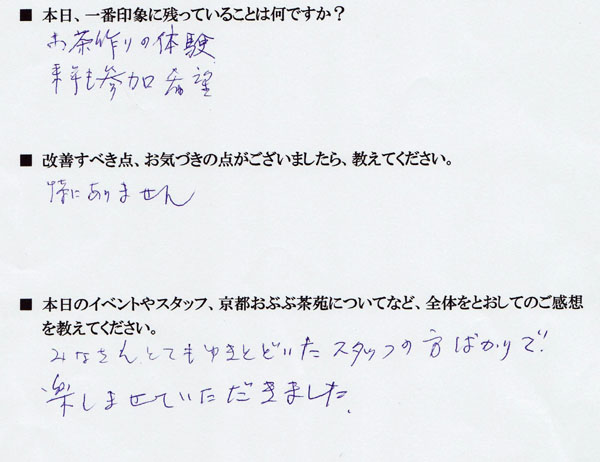 ■ 本日、一番印象に残っていることは何ですか？
お茶作りの体験
来年も参加希望
■ 改善すべき点、お気づきの点がございましたら、教えてください。
特にありません
■ 本日のイベントやスタッフ、京都おぶぶ茶苑についてなど、全体をとおしてのご感想
を教えてください。
みなさん、とてもゆきとどいたスタッフの方ばかりで、
楽しませていただきました。